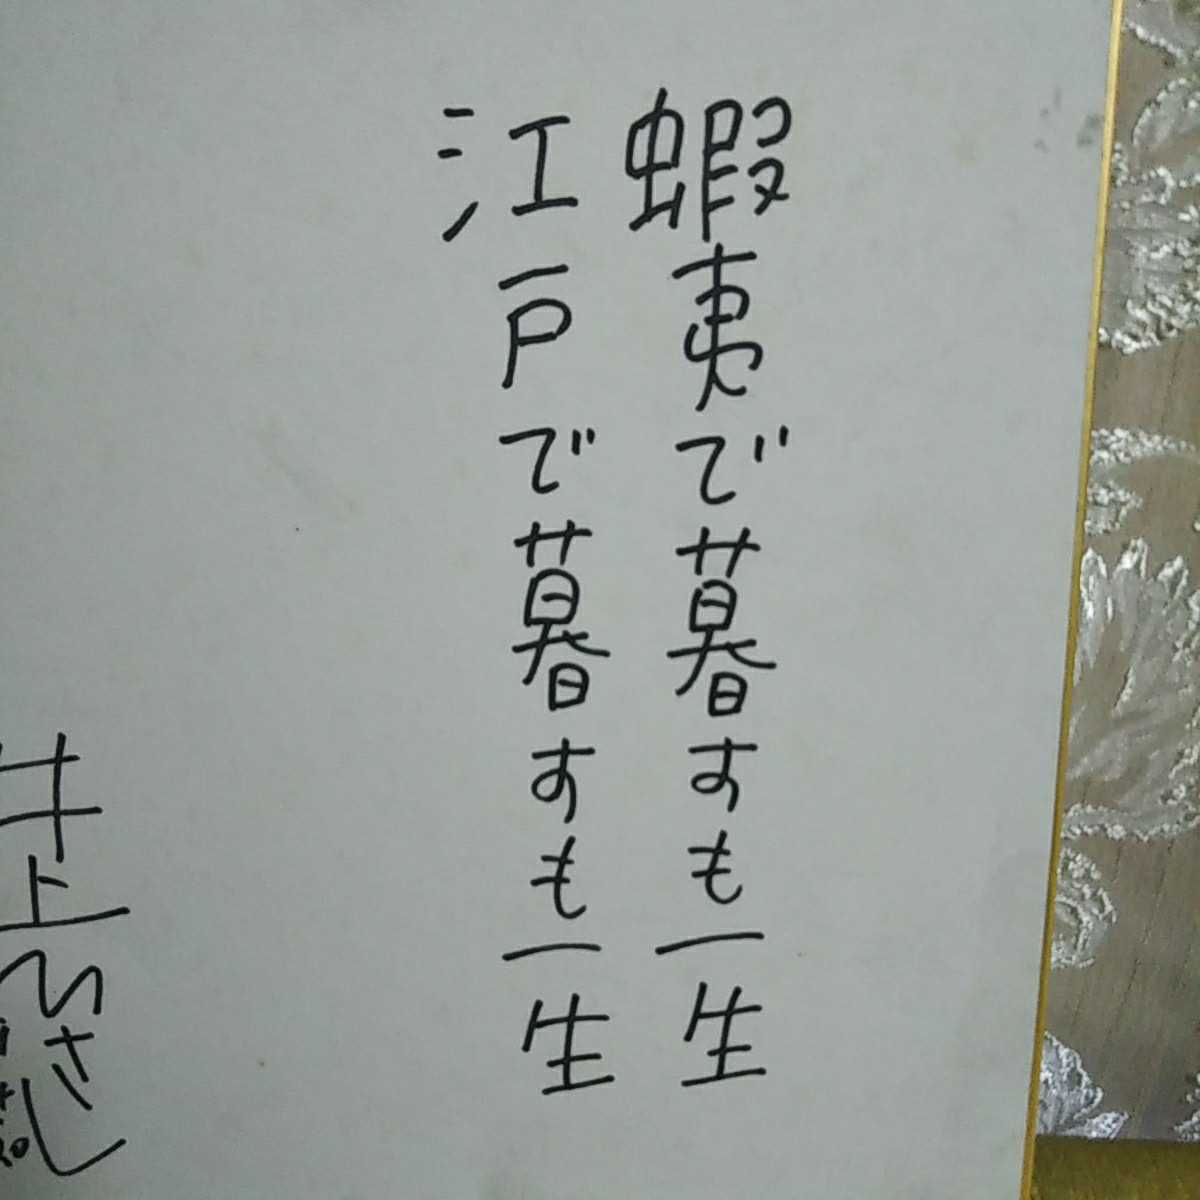 蝦夷で暮すも一生
江戸で暮すも一生
井上ひさし